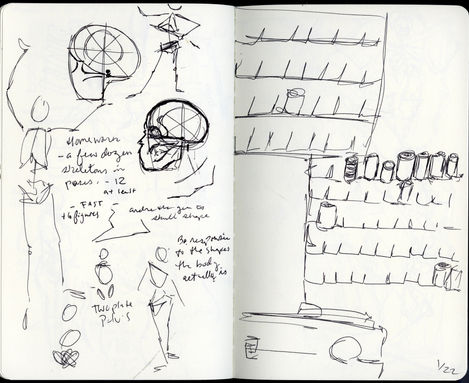 Homework
- a few dozen
skeletons in
poses. - 12
at least
- FAST
+6 figures
skull shape
Be responsive
to the shapes
the body
actually is
Two plate
Pelvis
1/22